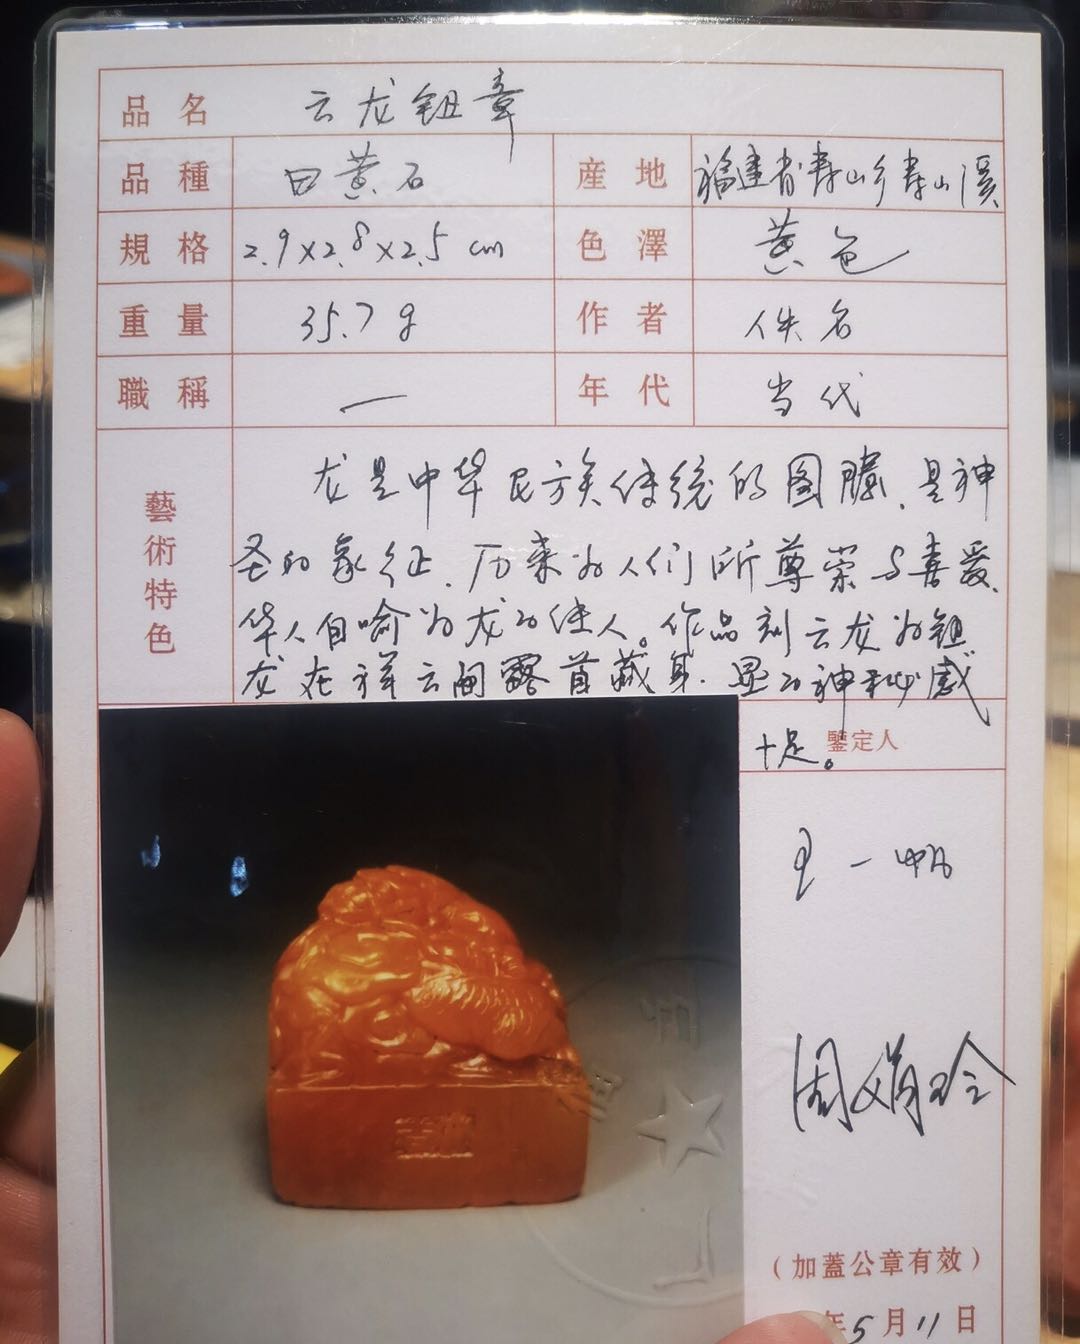 品名 云龙钮章
品種 田黄石 産地 福建省寿山乡寿山溪
規格 2.9×2.8×2.5 cm 色澤 黄色
重量 35.7g 作者 佚名
職稱 — 年代 当代
藝術特色
龙是中华民族传统的图腾、是神
圣的象征、历来为人们所尊荣与喜爱、
华人自喻为龙的传人。作品刻云龙为钮
龙在祥云间露首藏身、显的神秘感
十足。
鑒定人
王一帆
周娟玲
(加蓋公章有效)
年5月11日